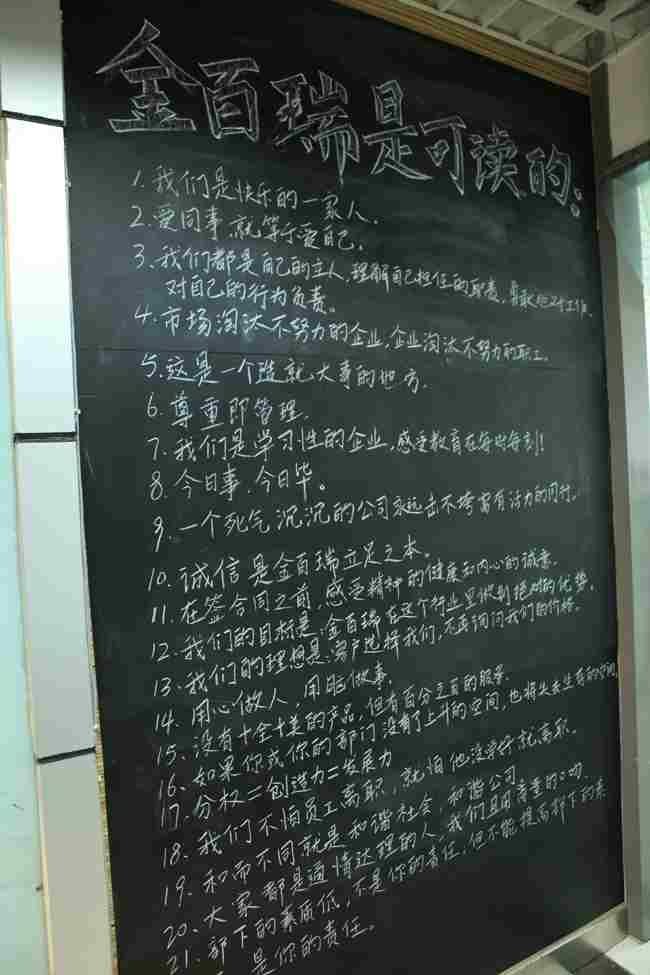 金百瑞是可读的:
1、我们是快乐的一家人.
2、爱同事就等于爱自己。
3、我们都是自己的主人,理解自己担任的职责、勇敢地对工作、
对自己的行为负责。
4、市场淘汰不努力的企业,企业淘汰不努力的职工。
5.这是一个造就大事的地方.
6、尊重即管理.
7、我们是学习性的企业,感受教育在每时每刻!
8、今日事.今日毕。
9、一个死气沉沉的公司永远击不垮富有活力的同行.
10、诚信是金百瑞立足之本。
11、在签合同之前,感受精神的健康和内心的诚意.
12、我们的目标是:金百瑞在这个行业里做到绝对的优势.
13、我们的理想是:客户选择我们,不再询问我们的价格。
14、用心做人,用脑做事.
15、没有十全十美的产品,但有百分之百的服务.
16、如果你或你的部门没有了上升的空间,也将失去生存的空间.
17、分权=创造力=发展力
18、我们不怕员工离职,就怕他没学好就离职。
19、和而不同就是和谐社会、和谐公司
20、大家都是通情达理的人,我们且用尊重的口吻.
21、部下的素质低,不是你的责任,但不能提高部下的素
是你的责任。